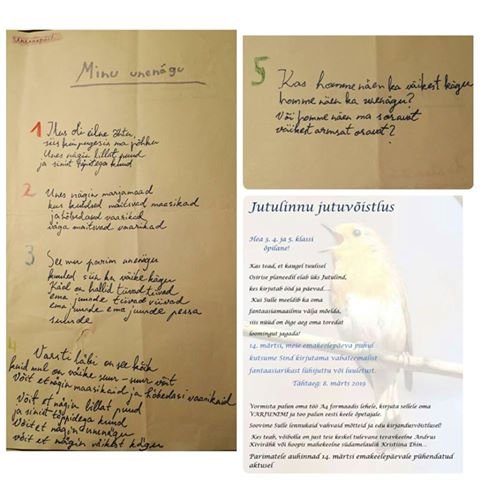 Minu unenägu
1 Ilus oli eilne õhtu,
siis kui pugesin ma põhku
Unes nägin lillat puud
ja sinist täppidega kuud
2 Unes nägin marjamaad
kus kuldsed maitsvad maasikad
ja hõbedased vaarikad
väga maitsvad vaarikad
3 See mu parim unenägu
kuuled siin ka väike kägu
Käol on hallid tiivad
ema juurde tiivad viivad
ema juurde ema juurde pessa
suurde
4 Varsti läbi on see köik
kuid mul on väike suur-suur võit
Võit et nägin maasikaid ja hõbedasi vaarikaid
Võit et nägin lillat puud
ja sinist täppidega kuud
Võit et nägin unenägu
võit et nägin väikest kägu
5 Kas homme näen ka väikest kägu
homme näen ka unenägu?
Või homme näen ma oravat
väikest armsat oravat?
Jutulinnu jutuvõistlus
Hea 3. 4. ja 5. klassi
õpilane!
Kas tead, et kaugel tuulisel
Osirise planeedil elab üks Jutulind,
kes kirjutab ööd ja päevad…
Kui Sulle meeldib ka oma
fantaasiamaailmu välja mõelda,
siis nüüd on õige aeg oma toredat
loomingut jagada!
14. märtsi, meie emakeelepäeva puhul
kutsume Sind kirjutama vabateemalist
fantaasiarikast lühijuttu või luuletust.
Tähtaeg: 8. märts 2019
Vormista palun oma töö A4 formaadis lehele, kirjuta sellele oma
VARJUNIMI ja too palun eesti keele õpetajale.
Soovime Sulle lennukaid vahvaid mõtteid ja edu kirjandusvõistlusel!
Kes teab, võibolla on just teie keskel tulevane teravkeelne Andrus
Kivirähk või hoopis maheheline südamelaulik Kristiina Ehin…
Parimatele auhinnad 14. märtsi emakeelepäevale pühendatud
aktusel